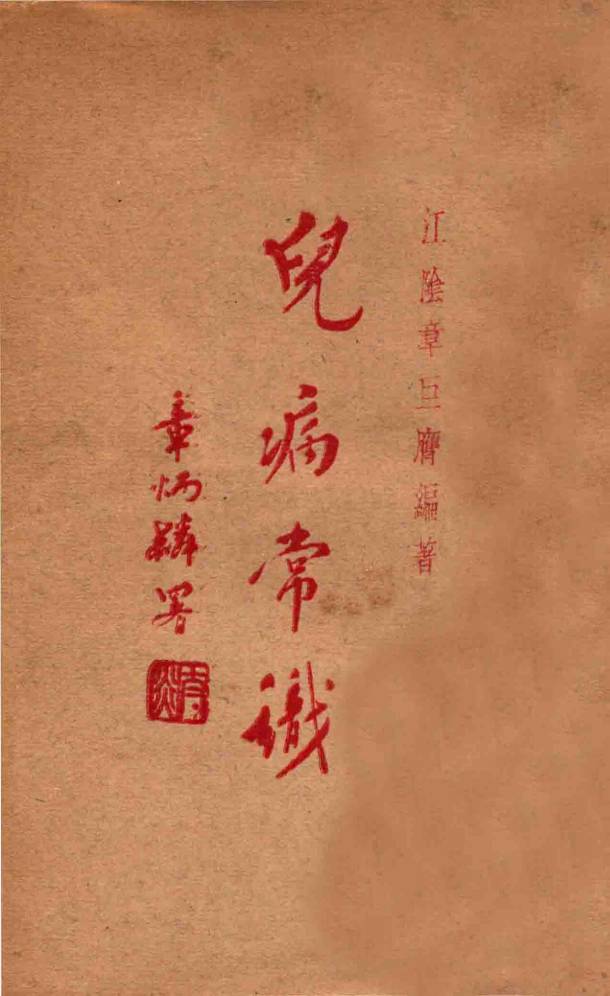 江陰章巨膺編著
兒病常識
章炳麟署